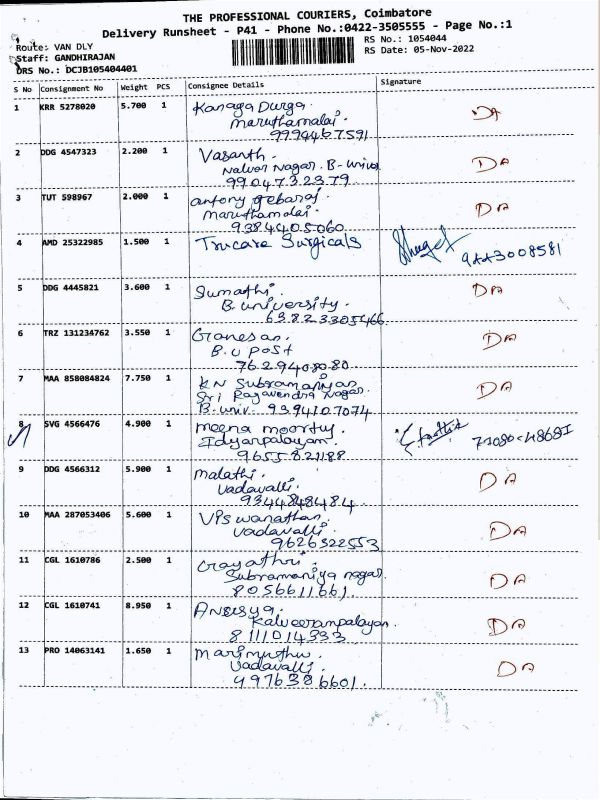 THE PROFESSIONAL COURIERS, Coimbatore
Delivery Runsheet - P41 - Phone No.:0422-3505555 - Page No.:1
Route: VAN DLY
RS No.: 1054044
Staff: GANDHIRAJAN
RS Date: 05-Nov-2022
DRS No.: DCJB105404401
S No Consignment No Weight PCS Consignee Details Signature
1 KRR 5278020 5.700 1 Kanaga Durga. DA
maruthamalai.
9994467591
2 DDG 4547323 2.200 1 Vasanth. DA
Nalvar Nagar. B-univ
9904732379
3 TUT 598967 2.000 1 antony gebaraj. DA
maruthamalai.
9384405060
4 AMD 25322985 1.500 1 Trucare Surgicals
9443008581
5 DDG 4445821 3.600 1 Sumathi. DA
B.university.
63823305466
6 TRZ 131234762 3.550 1 Ganesan. DA
B.U post
7629408080
7 MAA 858084824 7.750 1 KN Subramaniyan DA
Sri Ragavendra Nagar.
B-univ. 9394107074
8 SVG 4566476 4.900 1 meena moorthy.
Idyarpalayam.
9655821188
9 DDG 4566312 5.900 1 malathi. DA
vadavalli.
9344848484
10 MAA 287053406 5.600 1 Viswanathan DA
vadavalli.
9626322553
11 CGL 1610786 2.500 1 Gayathri. DA
Subramaniya nagar.
8056611661.
12 CGL 1610741 8.950 1 DA
Kalveerampalayan.
8111014333
13 PRO 14063141 1.650 1 marimuthu. DA
vadavalli.
9976386601.